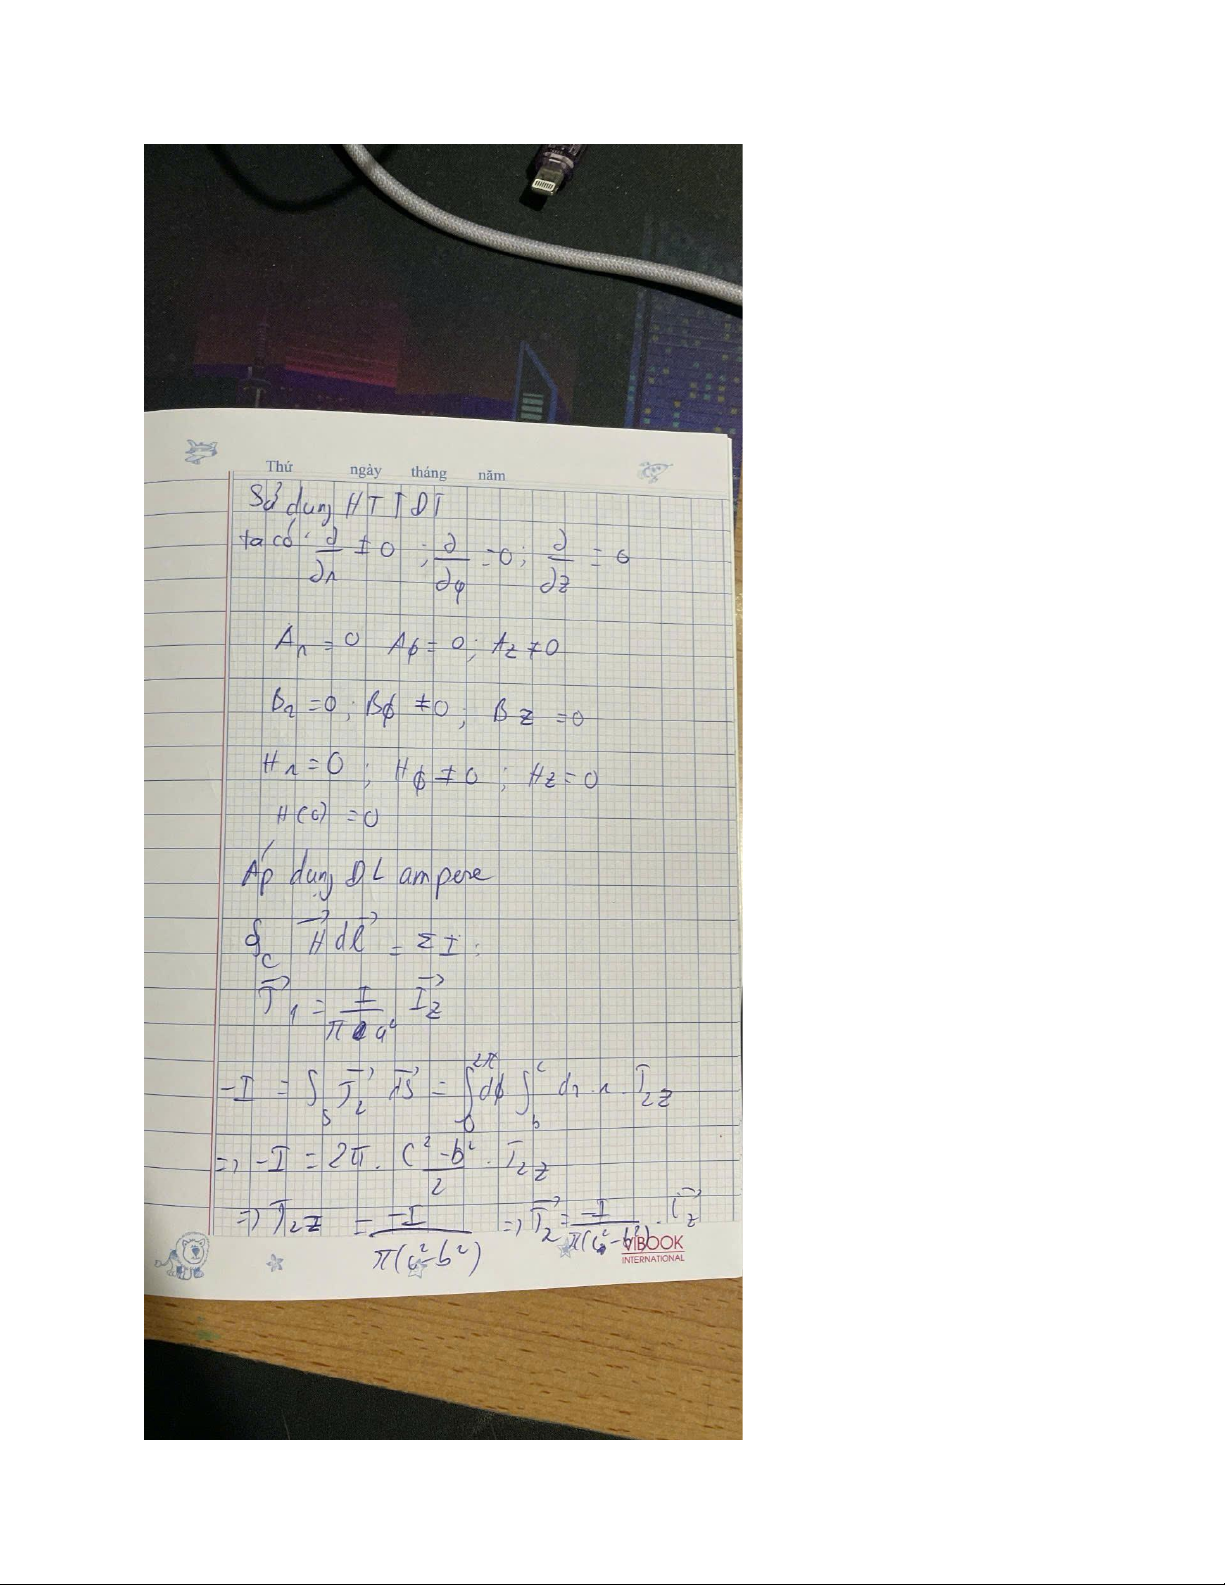 Thứ ngày tháng năm
Sử dụng HTTDT
ta có: ∂/∂r ≠ 0 ; ∂/∂φ = 0 ; ∂/∂z = 0
Ar = 0 Aϕ = 0 ; Az ≠ 0
Br = 0 ; Bϕ ≠ 0 ; Bz = 0
Hr = 0 ; Hϕ ≠ 0 ; Hz = 0
H(0) = 0
Áp dụng DL ampere
∮_C H⃗ dl⃗ = Σ I :
J⃗₁ = I/(πa²) I⃗z
-I = ∫_S J⃗₂ dS⃗ = ∫_0^{2π} dϕ ∫_b^c dr r J₂z
=> -I = 2π . (c² - b²)/2 . J₂z
=> J₂z = -I/(π(c² - b²)) => J⃗₂ = -I/(π(c² - b²)) . i⃗z
VIBOOK
INTERNATIONAL